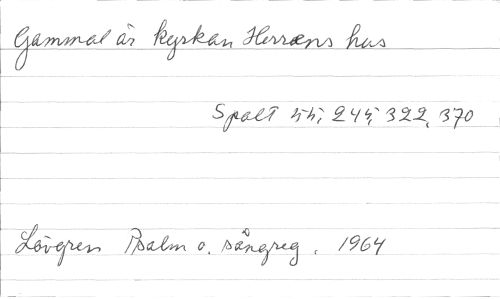 Gammal är kyrkan Herrens hus
Spalt 55, 245, 322, 370
Lövgren Psalm o. sångreg. 1964